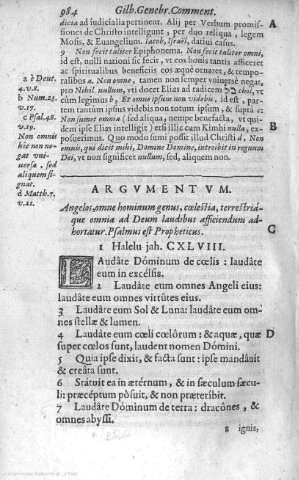 984 Gilb. Genebr. Comment.
dicta ad iudicialia pertinent. Alij per Verbum promis-
siones de Christo intelligunt, per duo reliqua, legem
Mosis, & Euangelium. Iacob, Israël, datiui casus.
9 Non fecit taliter Epiphonema. Non fecit taliter omni,
id est, nulli nationi sic fecit, vt eos bonis tantis afficeret
ac spiritualibus beneficiis eos æquè ornaret, & tempo-
ralibus a. Non omne, tamen non semper vsurpat negat,
pro Nihil nullum, vti docet Elias ad radicem chol, vt
cùm legimus b, Et omne ipsum non videbis, id est, par-
tem tantùm ipsius videbis non totum ipsum, & supra c:
Non sumet omnia (sed aliqua, nempe benefacta, vt qui-
dem ipse Elias intelligit) etsi illic cum Kimhi nulla, ex-
posuerimus. Quo modo sumi posset illud Christi d, Non
omnis, qui dicit mihi, Domine Domine, introibit in regnum
Dei, vt non significet nullum, sed, aliquem non.
a 2 Deut.
4.v.8.
b Num.23.
v.17.
c Psal.48.
v.19.
Non omnis
hic non ne-
gat vni-
uersa, sed
aliquem si-
gnat.
d Matth.7.
v.21.
B
ARGVMENTVM.
Angelos, omne hominum genus, cœlestia, terrestriá-
que omnia ad Deum laudibus afficiendum ad-
hortatur. Psalmus est Propheticus.
C
1 Halelu jah. CXLVIII.
LAudáte Dóminum de cœlis: laudáte
eum in excélsis.
2 Laudáte eum omnes Angeli eius:
laudáte eum omnes virtútes eius.
3 Laudáte eum Sol & Luna: laudáte eum om-
nes stellæ & lumen.
4 Laudáte eum cœli cœlórum: & aquæ, quæ
super cœlos sunt, laudent nomen Dómini.
D
5 Quia ipse dixit, & facta sunt: ipse mandáuit
& creáta sunt.
6 Státuit ea in ætérnum, & in sæculum sæcu-
li: præcéptum pósuit, & non præteríbit.
7 Laudáte Dóminum de terra: dracónes, &
omnes abyssi.
8 ignis,